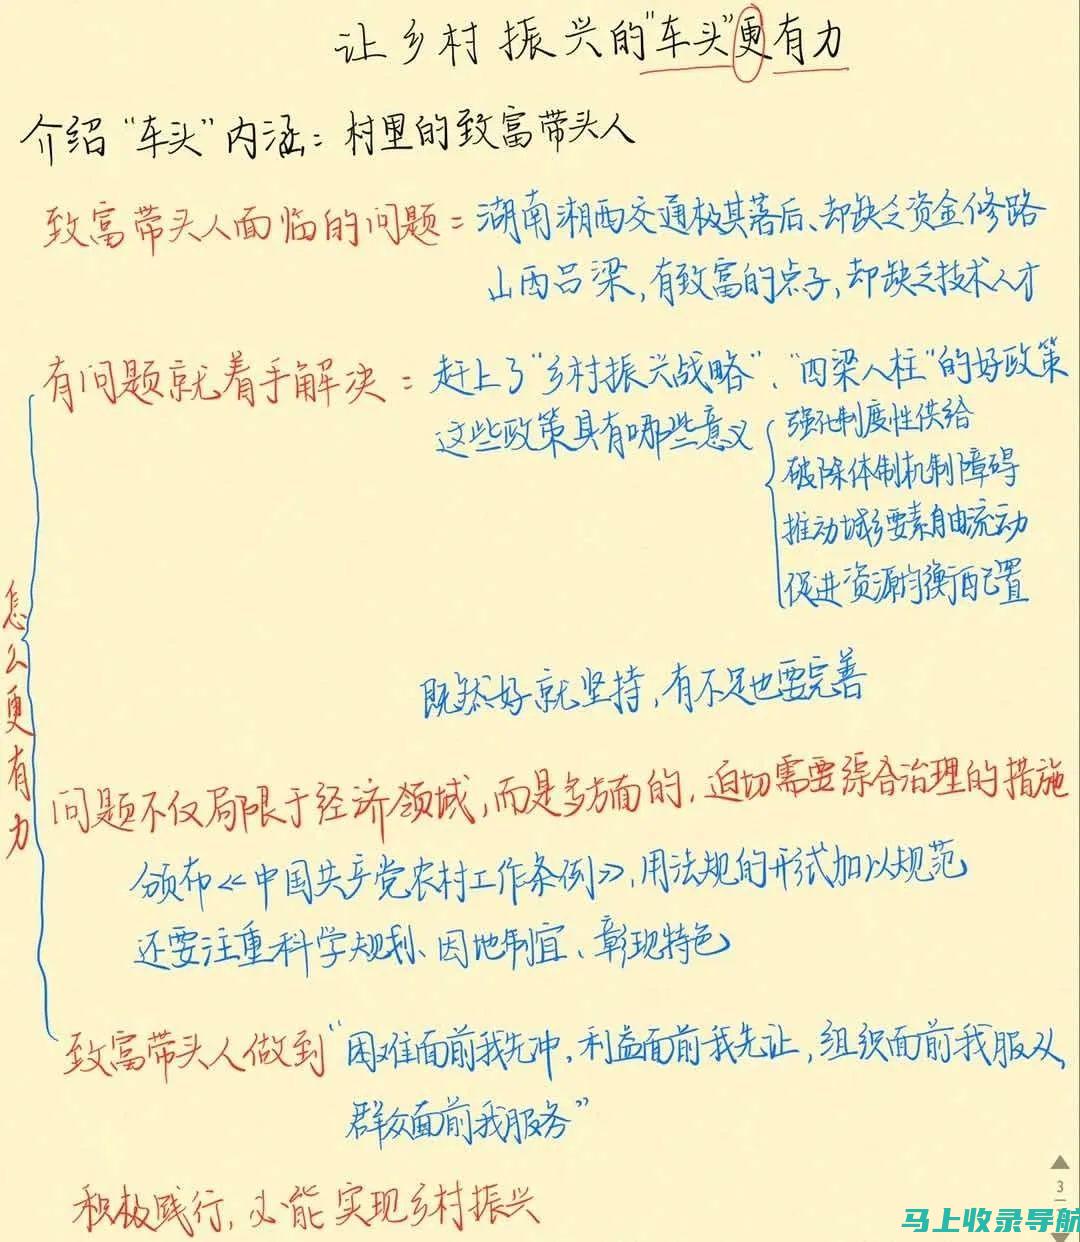 让乡村振兴的"车头"更有力
介绍"车头"内涵：村里的致富带头人
致富带头人面临的问题：湖南湘西交通极其落后、却缺乏资金修路
山西吕梁，有致富的点子，却缺乏技术人才
有问题就着手解决：赶上了"乡村振兴战略"、"四梁八柱"的好政策
这些政策具有哪些意义
强化制度性供给
破除体制机制障碍
推动城乡要素自由流动
促进资源均衡配置
既然好就坚持，有不足也要完善
怎么更有力
问题不仅局限于经济领域，而是多方面的，迫切需要综合治理的措施
颁布《中国共产党农村工作条例》，用法规的形式加以规范
还要注重科学规划、因地制宜、彰现特色
致富带头人做到"困难面前我先冲，利益面前我先让，组织面前我服从，
群众面前我服务"
积极践行，必能实现乡村振兴
3
马上收录导航